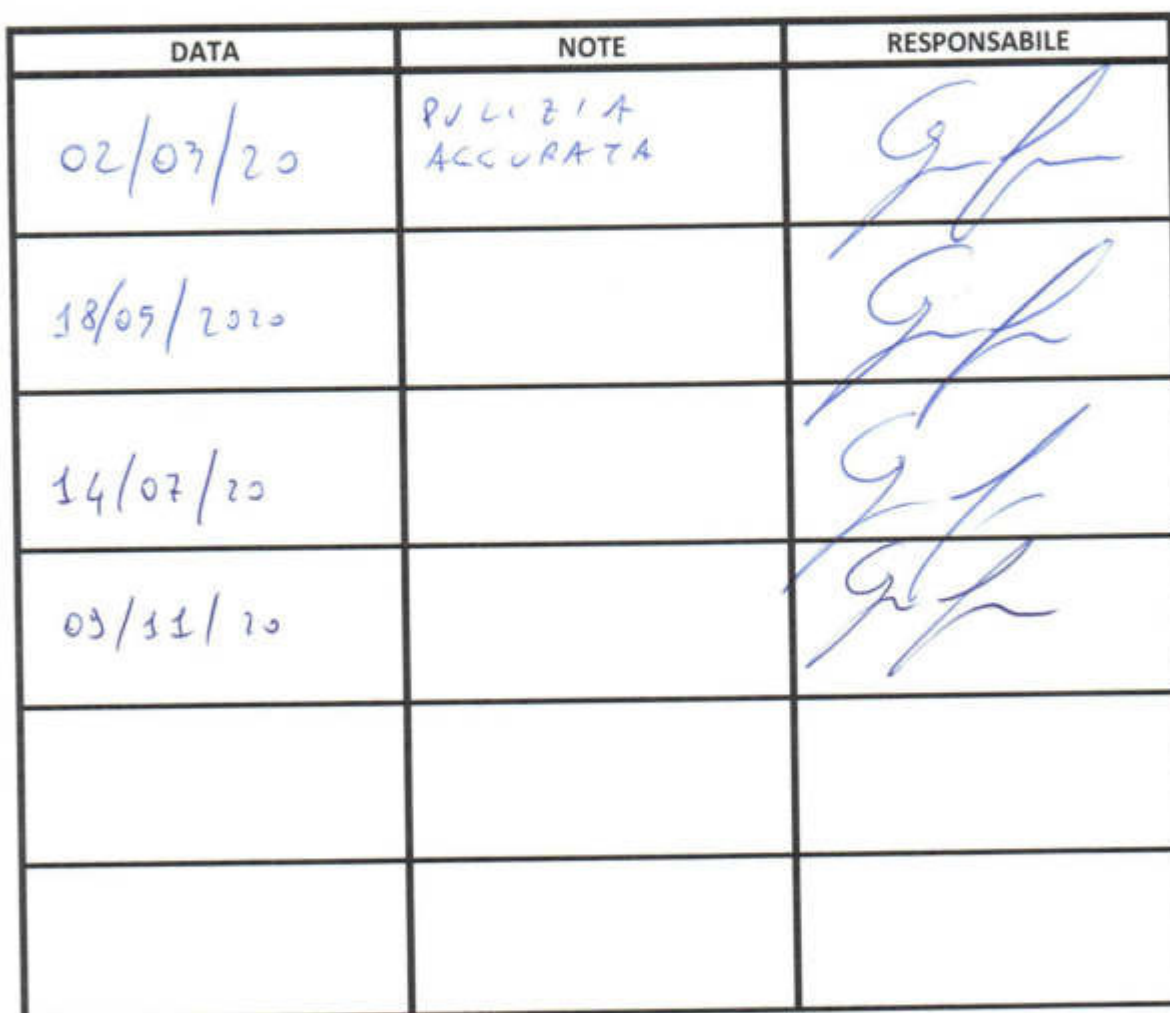 DATA NOTE RESPONSABILE
02/03/20 PULIZIA
ACCURATA
18/05/2020
14/07/20
09/11/20